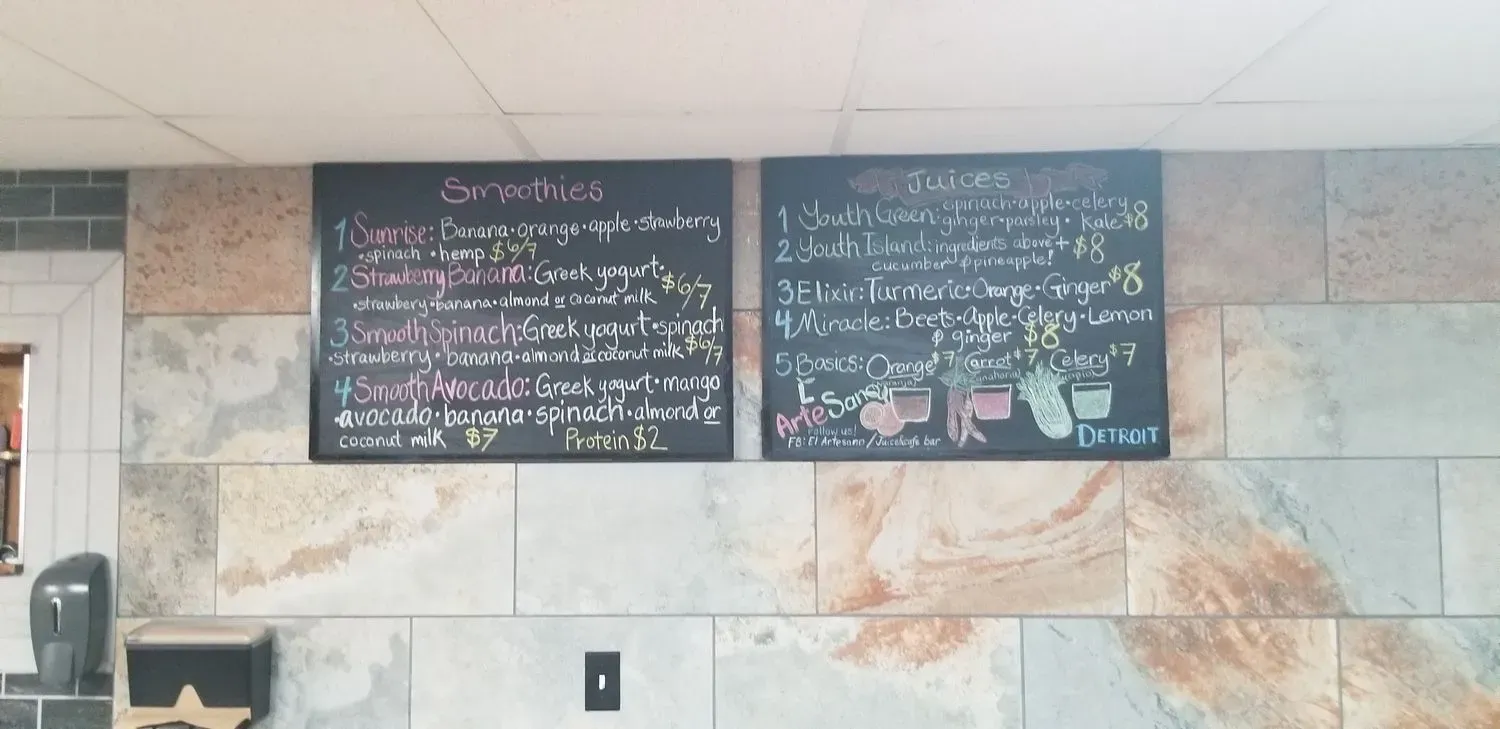 Smoothies
1 Sunrise: Banana • orange • apple • strawberry
• spinach • hemp $6/7
2 Strawberry Banana: Greek yogurt •
• strawbery • banana • almond or coconut milk $6/7
3 Smooth Spinach: Greek yogurt • spinach
• strawberry • banana • almond or coconut milk $6/7
4 Smooth Avocado: Greek yogurt • mango
• avocado • banana • spinach • almond or
coconut milk $7 Protein $2
Juices
1 Youth Green: spinach • apple • celery
ginger • parsley • kale $8
2 Youth Island: ingredients above + $8
cucumber & pineapple!
3 Elixir: Turmeric • Orange • Ginger $8
4 Miracle: Beets • Apple • Celery • Lemon
& ginger $8
5 Basics: Orange $7 Carrot $7 Celery $7
Naranja
El
ArteSano
Follow us!
FB: El Artesano / Juice&cafe bar
DETROIT